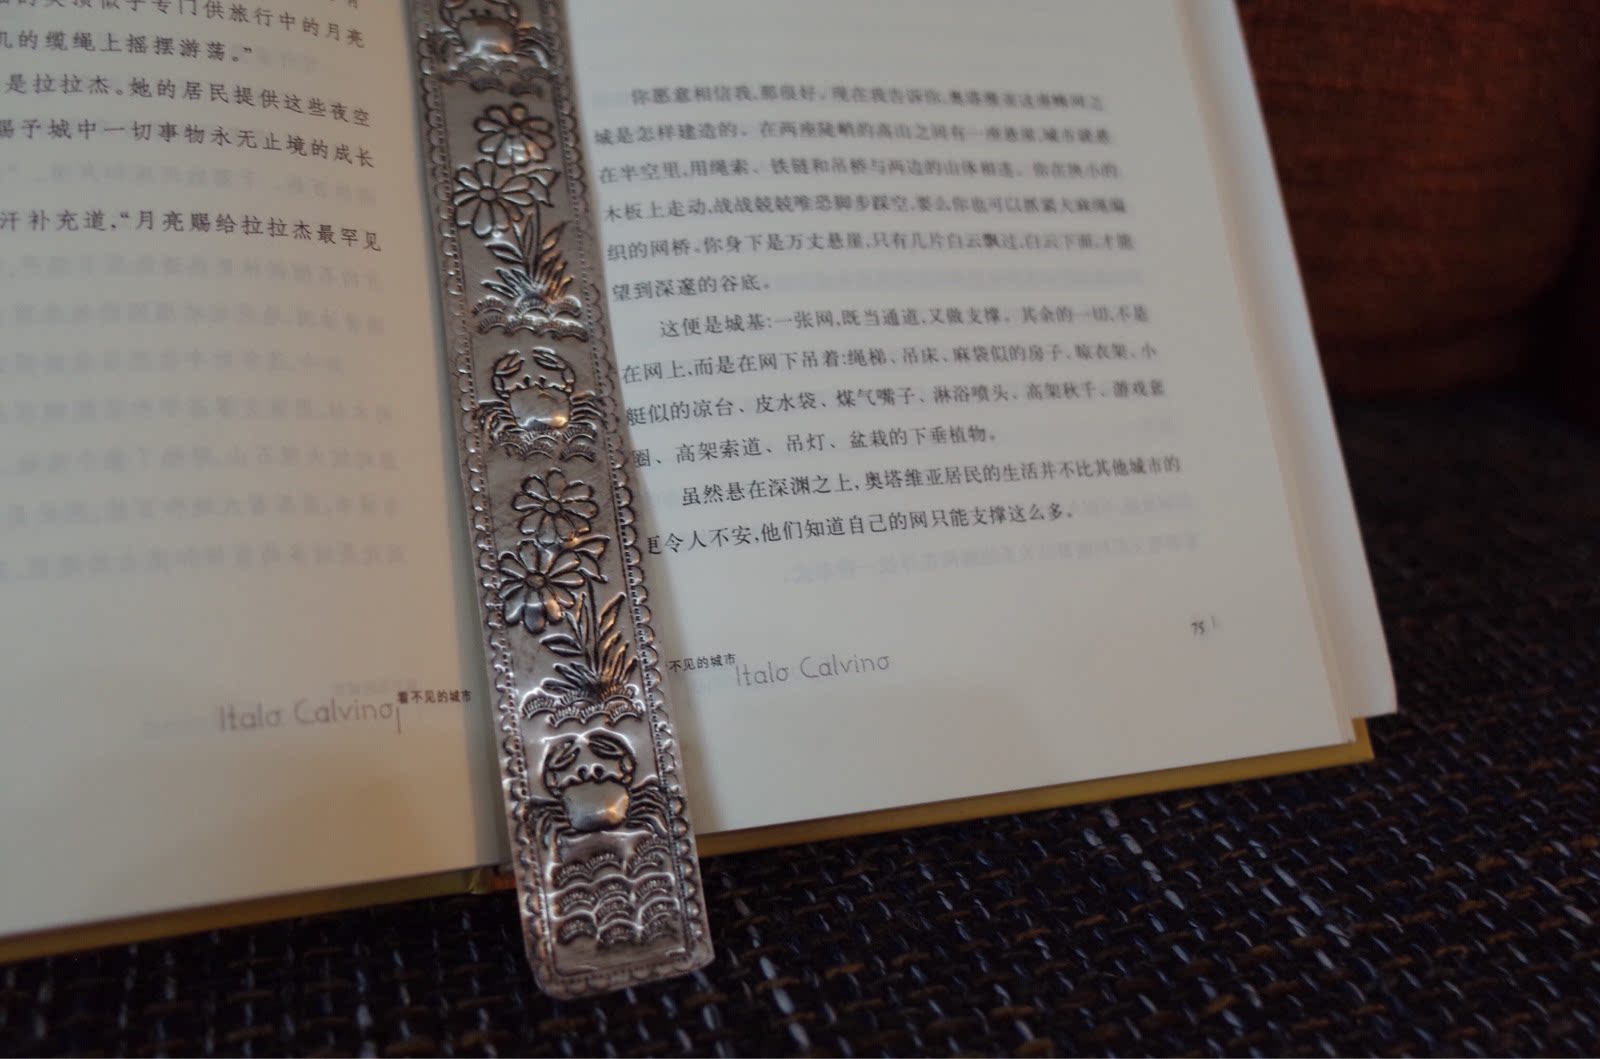 的英顶似乎专门供旅行中的月亮
几的缆绳上摇摆游荡。”
是拉拉杰。她的居民提供这些夜空
赐予城中一切事物永无止境的成长
汗补充道，“月亮赐给拉拉杰最罕见
Italo Calvino 看不见的城市
你愿意相信我，那很好。现在我告诉你，奥塔维亚这座蛛网之
城是怎样建造的。在两座陡峭的高山之间有一座悬崖，城市就悬
在半空里，用绳索、铁链和吊桥与两边的山体相连。你在狭小的
木板上走动，战战兢兢唯恐脚步踩空，要么你也可以抓紧大麻绳编
织的网桥。你身下是万丈悬崖，只有几片白云飘过，白云下面，才能
望到深邃的谷底。
这便是城基：一张网，既当通道，又做支撑。其余的一切，不是
在网上，而是在网下吊着：绳梯、吊床、麻袋似的房子、晾衣架、小
艇似的凉台、皮水袋、煤气嘴子、淋浴喷头、高架秋千、游戏套
圈、高架索道、吊灯、盆栽的下垂植物。
虽然悬在深渊之上，奥塔维亚居民的生活并不比其他城市的
更令人不安，他们知道自己的网只能支撑这么多。
不见的城市 Italo Calvino
75